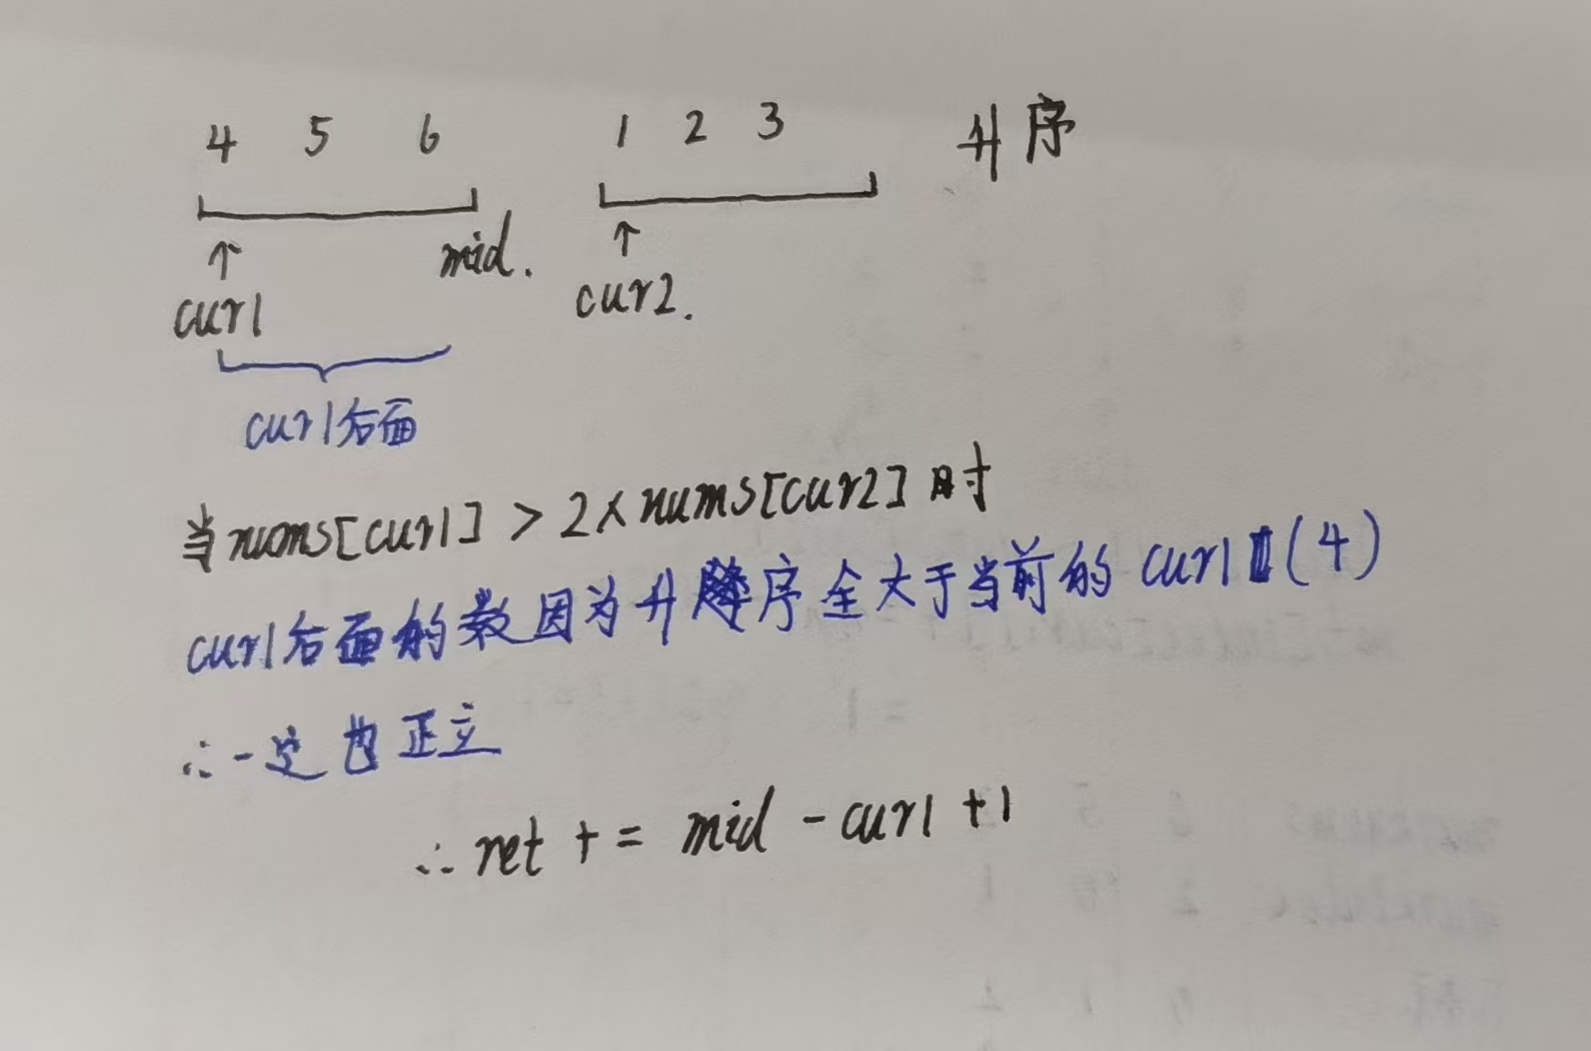 4 5 6 1 2 3 升序
↑ mid. ↑
cur1 cur2.
cur1后面
当nums[cur1] > 2×nums[cur2]时
cur1后面的数因为升序全大于当前的cur1(4)
∴一定也正立
∴ret += mid - cur1 +1